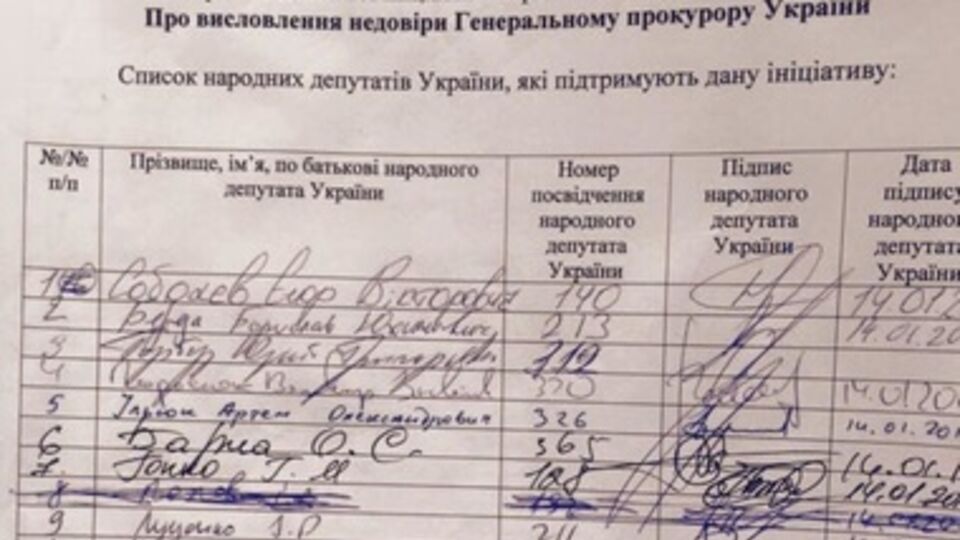 Про висловлення недовіри Генеральному прокурору України
Список народних депутатів України, які підтримують дану ініціативу:
№/№ п/п Прізвище, ім’я, по батькові народного депутата України Номер посвідчення народного депутата України Підпис народного депутата України Дата підпису народног депутата України
1 Соболєв Єгор Вікторович 140 14.012
2 Береза Борислав Юхимович 213 14.01.20
3 719
4 320 14.0120
5 Артем Олександрович 326 14.01.201
6 Барна О.С. 365 14.01.1
7. Гопко Г. М 128 14.01.20
8 14
9 Луценко І.Р 211